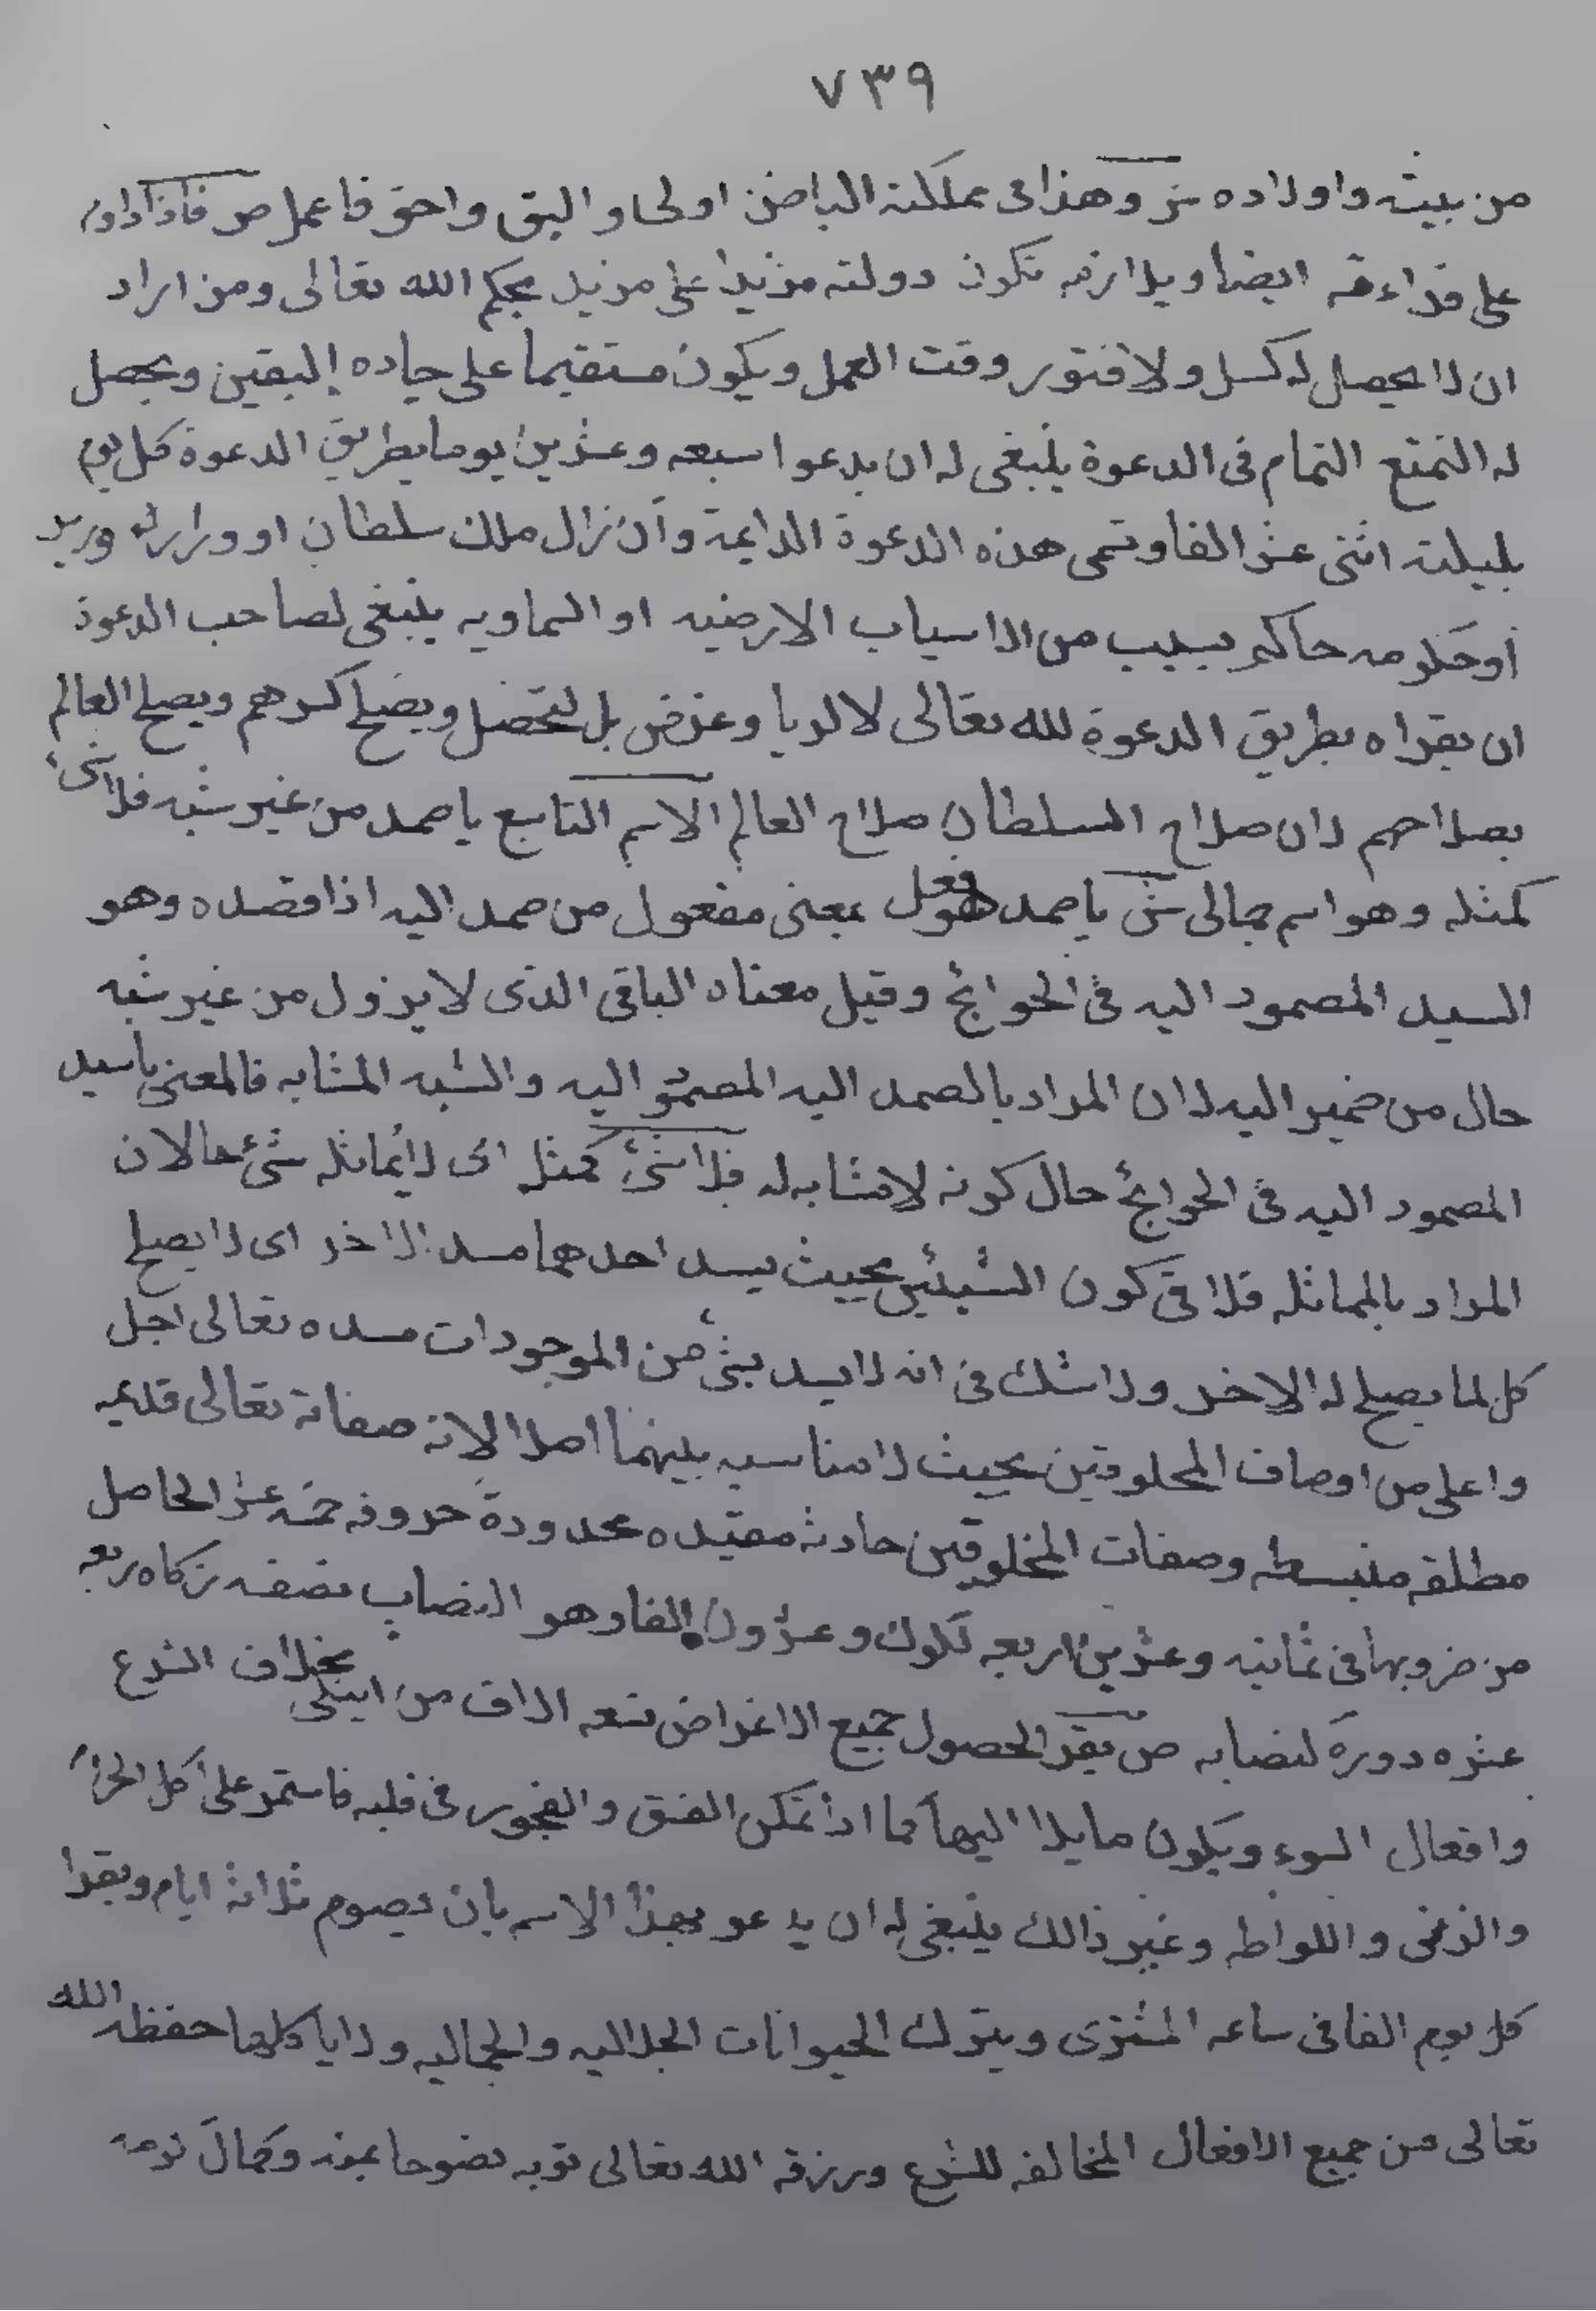 ٧٣٩
من بيته واولاده ش وهذا فى مملكة الباطن اولى واليق واحق فاعمل ص فاذا داوم
على قراءته ايضا ويلازمه تكون دولته مؤيدا على مزيد بحكم الله تعالى ومن اراد
ان لا يحصل له كسل ولا فتور وقت العمل ويكون مستقيما على جاده اليقين ويحصل
له التمتع التمام فى الدعوة ينبغى له ان يدعوا سبعه وعشرين يوما بطريق الدعوة كل يوم
بليلته اثنى عشر الفا وتسمى هذه الدعوة الدايمة وان زال ملك سلطان او وزارة وزير
او حكومه حاكم بسبب من الاسباب الارضيه او السماويه ينبغى لصاحب الدعوة
ان يقراه بطريق الدعوة لله تعالى لا لريا وغرض بل ليحصل ويصلح كسرهم ويصلح العالم
بصلاحهم لان صلاح السلطان صلاح العالم الاسم التاسع يا صمد من غير شبه فلا شئ
كمثله وهو اسم جمالى ش يا صمد هو فعل بمعنى مفعول من صمد اليه اذا قصده وهو
السيد المصمود اليه فى الحوائج وقيل معناه الباقى الذى لا يزول من غير شبه
حال من ضمير اليه لان المراد بالصمد اليه المصمود اليه والشبه المشابه فالمعنى يا سيد
المصمود اليه فى الحوائج حال كونه لا مشابه له فلا شئ كمثله اى لا يماثله شئ حالان
المراد بالمماثله فلا فى كون الشيئين بحيث يسد احدهما مسد الاخر اى لا يصلح
كل لما يصلح له الاخر ولا شك فى انه لا يسد شئ من الموجودات مسده تعالى اجل
واعلى من اوصاف المخلوقين بحيث لا مناسبه بينهما اصلا لانه صفاته تعالى قديمه
مطلقه منبسطه وصفات المخلوقين حادثه مقيده محدودة حروفه خمسه عشر الحاصل
من ضروبها فى ثمانيه وعشرين اربعه لكوك وعشرون الفا وهو النصاب نصفه زكاه ربعه
عشره دورة لنصابه ص يقرا لحصول جميع الاغراض تسعه الاف من ابتلى بخلاف الشرع
وافعال السوء ويكون مايلا اليها كما اذا تمكن الفسق والفجور فى قلبه فاستمر على اكل الحرام
والزنى واللواطه وغير ذالك ينبغى له ان يدعو بهذا الاسم بان يصوم ثلاثة ايام ويقرا
كل يوم الفا فى ساعه المشترى ويترك الحيوانات الجلاليه والجماليه ولا ياكلها حفظه الله
تعالى من جميع الافعال المخالفه للشرع ورزقه الله تعالى توبه نصوحا بمنه وكمال